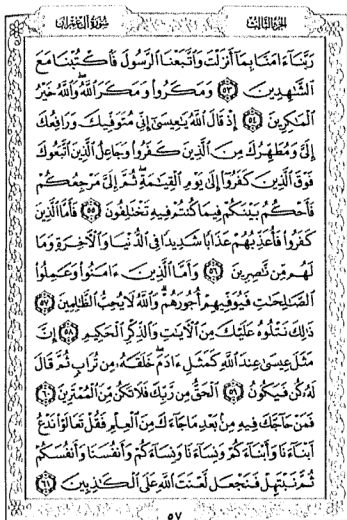 سورة آل عمران
الجزء الثالث
رَبَّنَآ ءَامَنَّا بِمَآ أَنزَلْتَ وَٱتَّبَعْنَا ٱلرَّسُولَ فَٱكْتُبْنَا مَعَ
ٱلشَّٰهِدِينَ ۝٥٣ وَمَكَرُوا۟ وَمَكَرَ ٱللَّهُ وَٱللَّهُ خَيْرُ
ٱلْمَٰكِرِينَ ۝٥٤ إِذْ قَالَ ٱللَّهُ يَٰعِيسَىٰٓ إِنِّي مُتَوَفِّيكَ وَرَافِعُكَ
إِلَيَّ وَمُطَهِّرُكَ مِنَ ٱلَّذِينَ كَفَرُوا۟ وَجَاعِلُ ٱلَّذِينَ ٱتَّبَعُوكَ
فَوْقَ ٱلَّذِينَ كَفَرُوٓا۟ إِلَىٰ يَوْمِ ٱلْقِيَٰمَةِ ثُمَّ إِلَيَّ مَرْجِعُكُمْ
فَأَحْكُمُ بَيْنَكُمْ فِيمَا كُنتُمْ فِيهِ تَخْتَلِفُونَ ۝٥٥ فَأَمَّا ٱلَّذِينَ
كَفَرُوا۟ فَأُعَذِّبُهُمْ عَذَابًا شَدِيدًا فِي ٱلدُّنْيَا وَٱلْءَاخِرَةِ وَمَا
لَهُم مِّن نَّٰصِرِينَ ۝٥٦ وَأَمَّا ٱلَّذِينَ ءَامَنُوا۟ وَعَمِلُوا۟
ٱلصَّٰلِحَٰتِ فَيُوَفِّيهِمْ أُجُورَهُمْ وَٱللَّهُ لَا يُحِبُّ ٱلظَّٰلِمِينَ ۝٥٧
ذَٰلِكَ نَتْلُوهُ عَلَيْكَ مِنَ ٱلْءَايَٰتِ وَٱلذِّكْرِ ٱلْحَكِيمِ ۝٥٨ إِنَّ
مَثَلَ عِيسَىٰ عِندَ ٱللَّهِ كَمَثَلِ ءَادَمَ خَلَقَهُۥ مِن تُرَابٍ ثُمَّ قَالَ
لَهُۥ كُن فَيَكُونُ ۝٥٩ ٱلْحَقُّ مِن رَّبِّكَ فَلَا تَكُن مِّنَ ٱلْمُمْتَرِينَ ۝٦٠
فَمَنْ حَآجَّكَ فِيهِ مِنۢ بَعْدِ مَا جَآءَكَ مِنَ ٱلْعِلْمِ فَقُلْ تَعَالَوْا۟ نَدْعُ
أَبْنَآءَنَا وَأَبْنَآءَكُمْ وَنِسَآءَنَا وَنِسَآءَكُمْ وَأَنفُسَنَا وَأَنفُسَكُمْ
ثُمَّ نَبْتَهِلْ فَنَجْعَل لَّعْنَتَ ٱللَّهِ عَلَى ٱلْكَٰذِبِينَ ۝٦١
٥٧